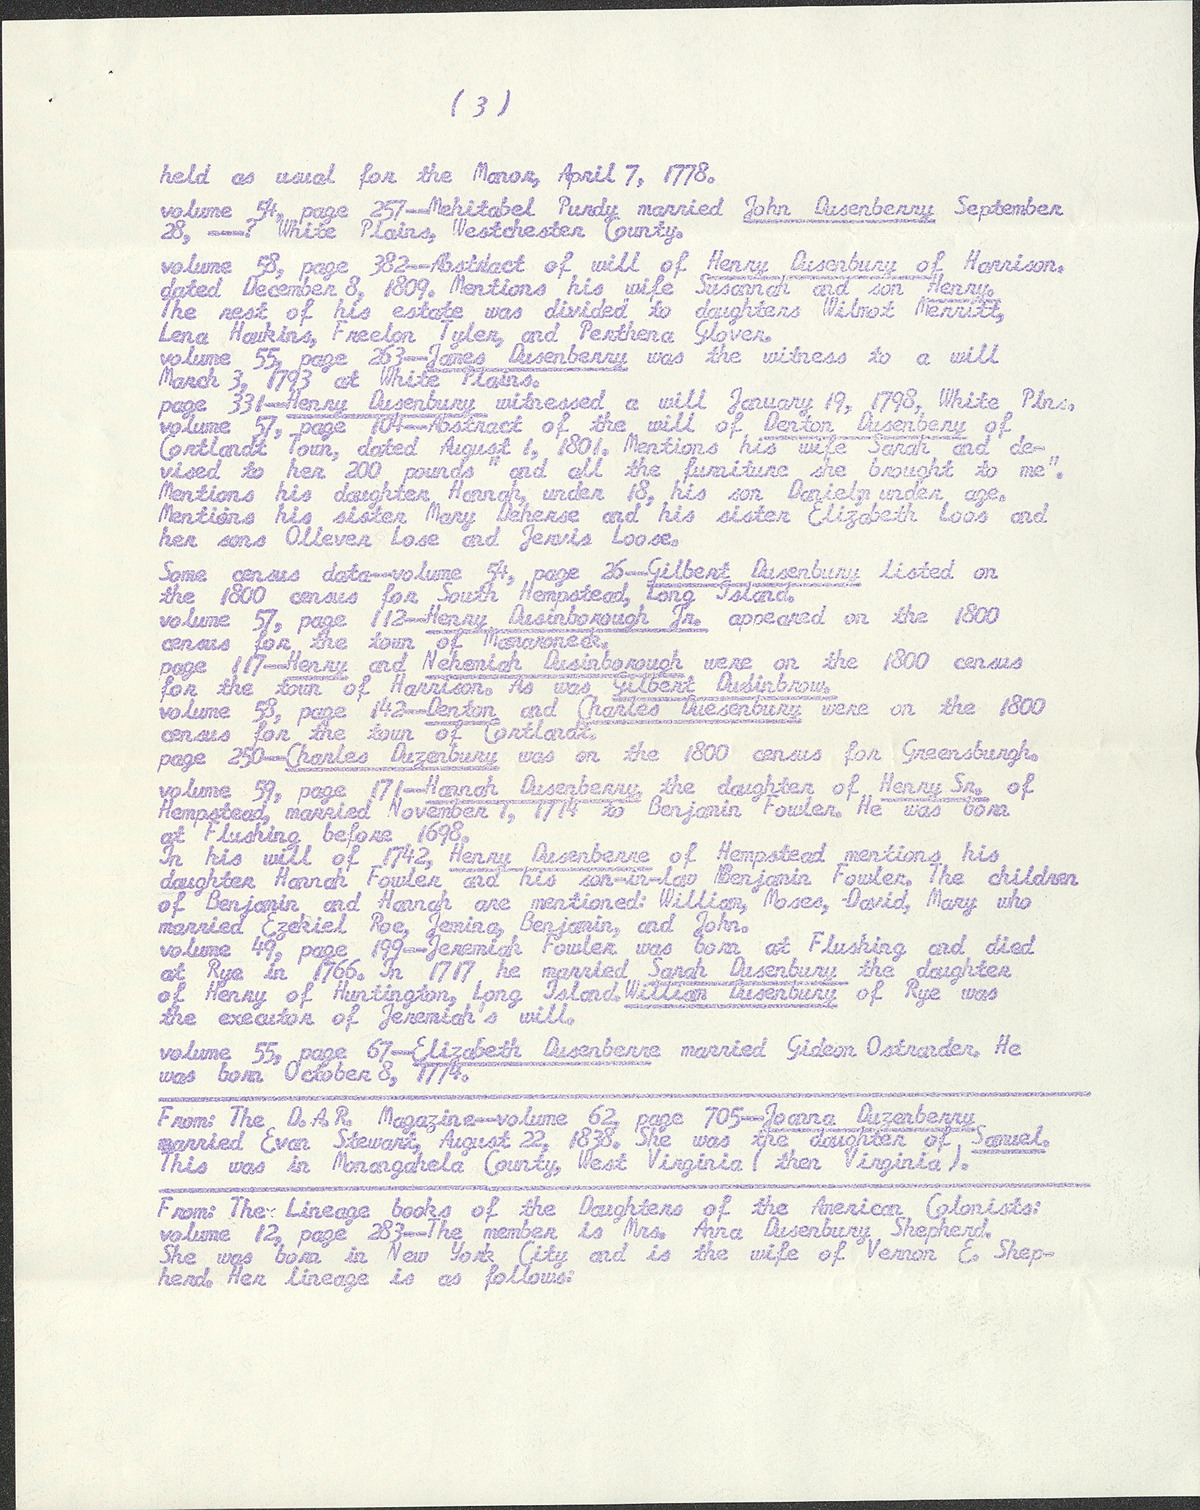 (3)
held as usual for the Manor, April 7, 1778.
volume 54, page 257--Mehitabel Purdy married John Dusenberry September
28, ---? White Plains, Westchester County.
volume 58, page 382--Abstract of will of Henry Dusenbury of Harrison.
dated December 8, 1809. Mentions his wife Susannah and son Henry.
The rest of his estate was divided to daughters Wilmot Merritt,
Lena Hawkins, Freelon Tyler, and Perthena Glover.
volume 55, page 263--James Dusenberry was the witness to a will
March 3, 1793 at White Plains.
page 331--Henry Dusenbury witnessed a will January 19, 1798, White Plns.
volume 57, page 104--Abstract of the will of Denton Dusenbery of
Cortlandt Town, dated August 1, 1801. Mentions his wife Sarah and de-
vised to her 200 pounds "and all the furniture she brought to me".
Mentions his daughter Hannah, under 18, his son Daniel, under age.
Mentions his sister Mary Deherse and his sister Elizabeth Loos and
her sons Ollever Lose and Jervis Loose.
Some census data--volume 54, page 26--Gilbert Dusenbury listed on
the 1800 census for South Hempstead, Long Island.
volume 57, page 112--Henry Dusinborough Jr. appeared on the 1800
census for the town of Mamaroneck.
page 117--Henry and Nehemiah Dusinborough were on the 1800 census
for the town of Harrison. As was Gilbert Dusinbrow.
volume 58, page 142--Denton and Charles Duesenbury were on the 1800
census for the town of Cortlandt.
page 250--Charles Duzenbury was on the 1800 census for Greensburgh.
volume 59, page 171--Hannah Dusenberry, the daughter of Henry Sr. of
Hempstead, married November 1, 1714 to Benjamin Fowler. He was born
at Flushing before 1698.
In his will of 1742, Henry Dusenberre of Hempstead mentions his
daughter Hannah Fowler and his son-in-law Benjamin Fowler. The children
of Benjamin and Hannah are mentioned: William, Moses, David, Mary who
married Ezekiel Roe, Jemina, Benjamin, and John.
volume 49, page 199--Jeremiah Fowler was born at Flushing and died
at Rye in 1766. In 1717 he married Sarah Dusenbury the daughter
of Henry of Huntington, Long Island. William Dusenbury of Rye was
the executor of Jeremiah's will.
volume 55, page 67--Elizabeth Dusenberre married Gideon Ostrander. He
was born October 8, 1774.
From: The D.A.R. Magazine--volume 62, page 705--Joanna Duzenberry
married Evan Stewart, August 22, 1838. She was the daughter of Samuel.
This was in Monongahela County, West Virginia ( then Virginia ).
From: The Lineage books of the Daughters of the American Colonists:
volume 12, page 283--The member is Mrs. Anna Dusenbury Shepherd.
She was born in New York City and is the wife of Vernon E. Shep-
herd. Her lineage is as follows: